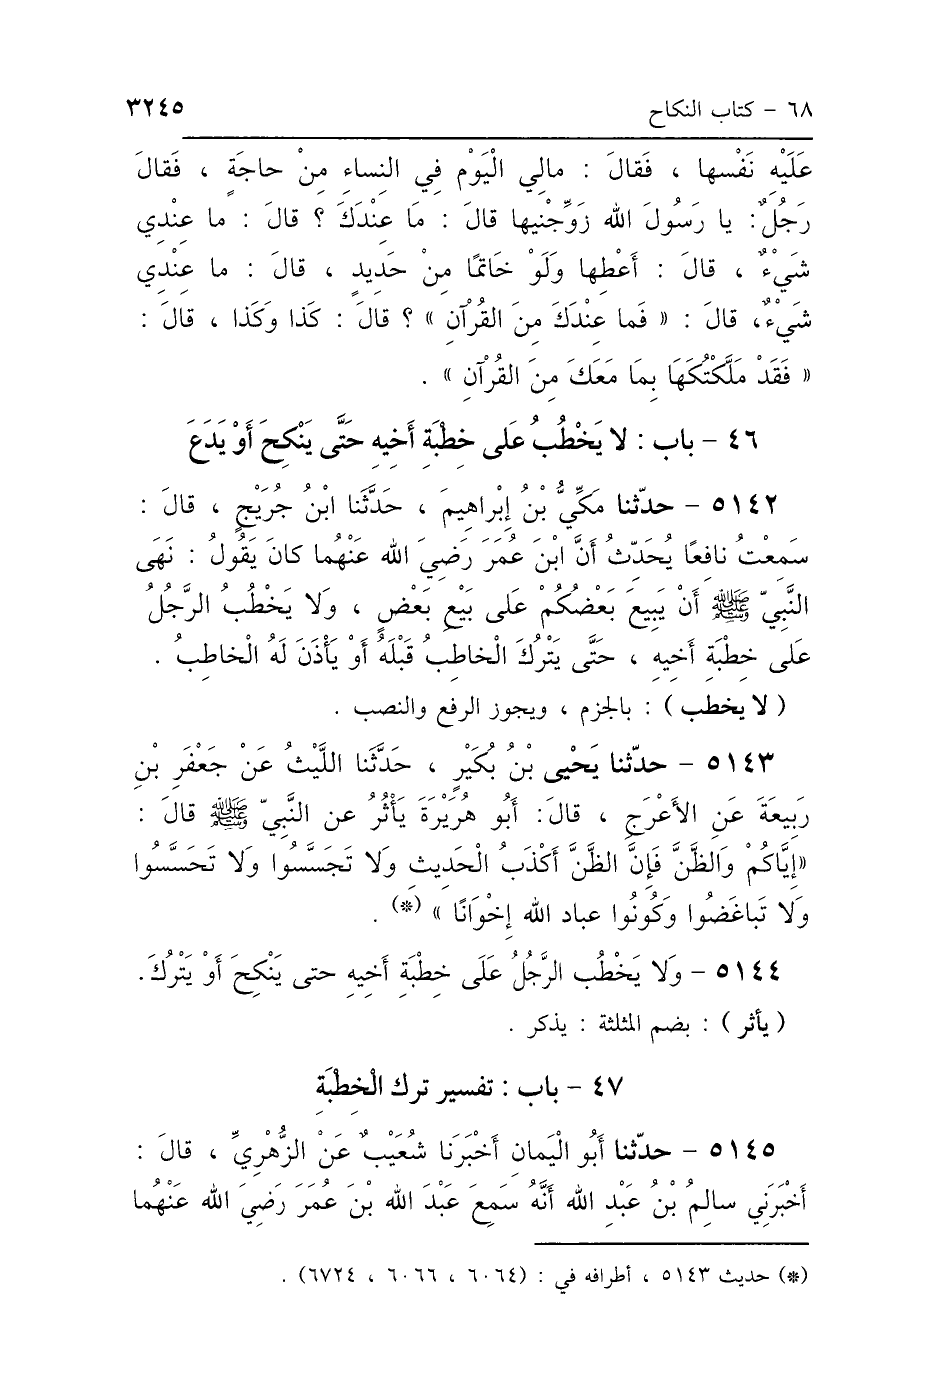 ٦٨ - كتاب النكاح ٣٢٤٥
عَلَيْهِ نَفْسها ، فَقالَ : مالي الْيَوْم فِي النساءِ مِنْ حاجَةٍ ، فَقالَ
رَجُلٌ: يا رَسُولَ الله زَوِّجْنِيها قالَ : مَا عِنْدَكَ ؟ قالَ : ما عِنْدِي
شَيْءٌ ، قالَ : أَعْطِها وَلَوْ خَاتمًا مِنْ حَدِيدٍ ، قالَ : ما عِنْدِي
شَيْءٌ، قالَ : « فَما عِنْدَكَ مِنَ القُرْآنِ » ؟ قالَ : كَذا وَكَذا ، قالَ :
« فَقَدْ مَلَّكْتُكَهَا بِمَا مَعَكَ مِنَ القُرْآنِ » .
٤٦ - باب : لا يَخْطُبُ عَلى خِطْبَةِ أَخِيهِ حَتَّى يَنْكِحَ أَوْ يَدَعَ
٥١٤٢ - حدّثنا مَكِّيُّ بْنُ إِبْراهِيمَ ، حَدَّثَنا ابْنُ جُرَيْجٍ ، قالَ :
سَمِعْتُ نافِعًا يُحَدِّثُ أَنَّ ابْنَ عُمَرَ رَضِيَ الله عَنْهُما كانَ يَقُولُ : نَهَى
النَّبِيّ ﷺ أَنْ يَبِيعَ بَعْضُكُمْ عَلى بَيْعِ بَعْضٍ ، وَلا يَخْطُبُ الرَّجُلُ
عَلى خِطْبَةِ أَخِيهِ ، حَتَّى يَتْرُكَ الْخاطِبُ قَبْلَهُ أَوْ يَأْذَنَ لَهُ الْخاطِبُ .
( لا يخطب ) : بالجزم ، ويجوز الرفع والنصب .
٥١٤٣ - حدّثنا يَحْيى بْنُ بُكَيْرٍ ، حَدَّثَنا اللَّيْثُ عَنْ جَعْفَرِ بْنِ
رَبِيعَةَ عَنِ الأَعْرَجِ ، قالَ: أَبُو هُرَيْرَةَ يَأْثُرُ عن النَّبِيّ ﷺ قالَ :
«إِيَّاكُمْ وَالظَّنَّ فَإِنَّ الظَّنَّ أَكْذَبُ الْحَدِيثِ وَلا تَجَسَّسُوا وَلا تَحَسَّسُوا
وَلا تَباغَضُوا وَكُونُوا عباد الله إِخْوَانًا » (*) .
٥١٤٤ - وَلا يَخْطُب الرَّجُلُ عَلَى خِطْبَةِ أَخِيهِ حتى يَنْكِحَ أَوْ يَتْرُكَ.
( يأثر ) : بضم المثلثة : يذكر .
٤٧ - باب : تفسير ترك الْخِطْبَةِ
٥١٤٥ - حدّثنا أَبُو الْيَمانِ أَخْبَرَنا شُعَيْبٌ عَنْ الزُّهْرِيِّ ، قالَ :
أَخْبَرَنِي سالِمُ بْنُ عَبْدِ الله أَنَّهُ سَمِعَ عَبْدَ الله بْنَ عُمَرَ رَضِيَ الله عَنْهُما
(*) حديث ٥١٤٣ ، أطرافه في : (٦٠٦٤ ، ٦٠٦٦ ، ٦٧٢٤) .